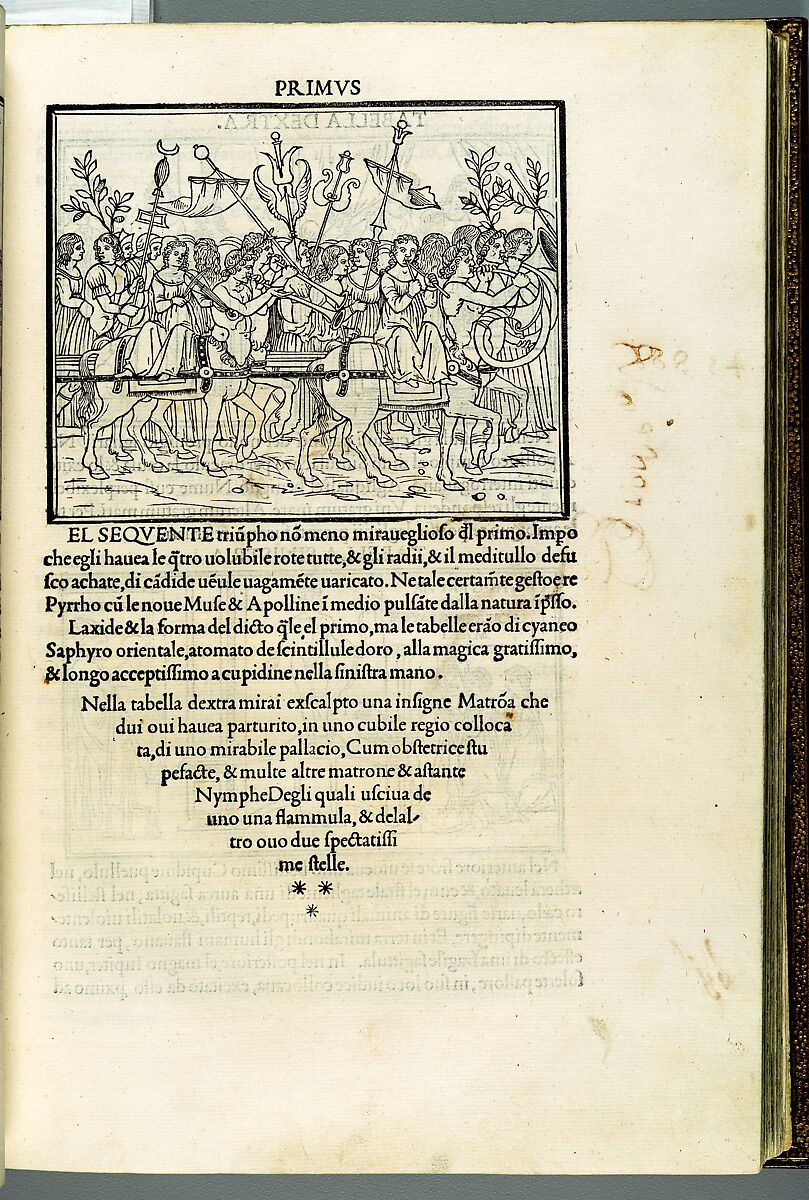 PRIMVS
EL SEQVENTE triũpho nõ meno miraueglioſo đl primo. Impo
che egli hauea le q̃tro uolubile rote tutte, & gli radii, & il meditullo defu
ſco achate, di cãdide uẽule uagamẽte uaricato. Ne tale certam̃te geſtoe re
Pyrrho cũ le noue Muſe & Apolline ĩ medio pulſãte dalla natura ĩp̃ſſo.
Laxide & la forma del dicto q̃le el primo, ma le tabelle erão di cyaneo
Saphyro orientale, atomato de ſcintillule doro, alla magica gratiſſimo,
& longo acceptiſſimo a cupidine nella ſiniſtra mano.
Nella tabella dextra mirai exſcalpto una inſigne Matrõa che
dui oui hauea parturito, in uno cubile regio colloca
ta, di uno mirabile pallacio, Cum obſtetrice ſtu
pefacte, & multe altre matrone & aſtante
Nymphe Degli quali uſciua de
uno una flammula, & delal-
tro ouo due ſpectatiſſi
me ſtelle.
* *
*